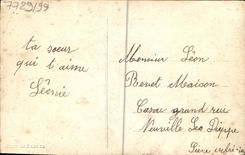 7729/99
ta soeur
qui t'aime
Léonie
Monsieur Léon
Benet Maison
Carou grand rue
Neuville Les Dieppe
Seine infre